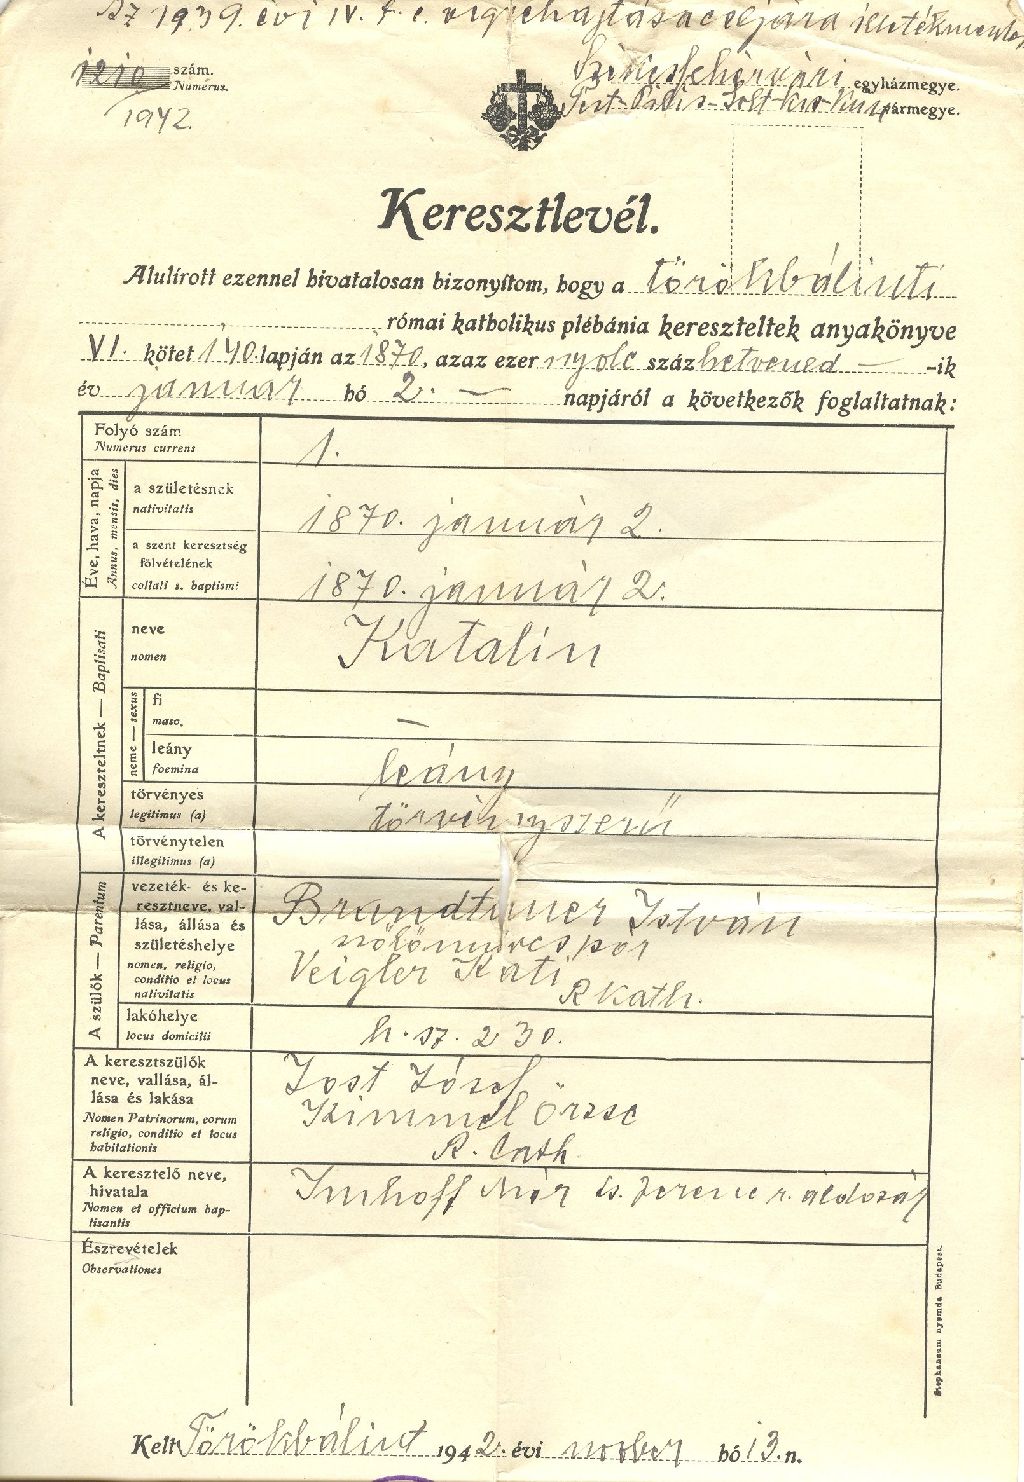 Az 1939. évi IV. t. c. végrehajtása céljára illetékmentes
1210 szám.
Numerus.
1942.
Székesfehérvári egyházmegye.
Pest-Pilis-Solt-Kis-Kun vármegye.
Keresztlevél.
Alulírott ezennel hivatalosan bizonyítom, hogy a törökbálinti
római katholikus plébánia kereszteltek anyakönyve
VI. kötet 140 lapján az 1870, azaz ezer nyolc száz hetvened — -ik
év január hó 2. — napjáról a következők foglaltatnak:
Folyó szám
Numerus currens
1.
Éve, hava, napja
Annus, mensis, dies
a születésnek
nativitatis
1870. január 2.
a szent keresztség
fölvételének
collati s. baptismi
1870. január 2.
A kereszteltnek — Baptisati
neve
nomen
Katalin
neme — sexus
fi
masc.
—
leány
foemina
leány
törvényes
legitimus (a)
törvényszerű
törvénytelen
illegitimus (a)
A szülők — Parentum
vezeték- és ke-
resztneve, val-
lása, állása és
születéshelye
nomen, religio,
conditio et locus
nativitatis
Brandtner István
Veigler Kati
R Kath.
lakóhelye
locus domicilii
h. sz. 230.
A keresztszülők
neve, vallása, ál-
lása és lakása
Nomen Patrinorum, eorum
religio, conditio et locus
habitationis
Jost József
Kimmel Örzse
R. Cath.
A keresztelő neve,
hivatala
Nomen et officium bap-
tisantis
Imhoff Mór sz. Ferenc r. áldozár
Észrevételek
Observationes
Stephaneum nyomda Budapest.
Kelt Törökbálint 1942. évi november hó 13. n.